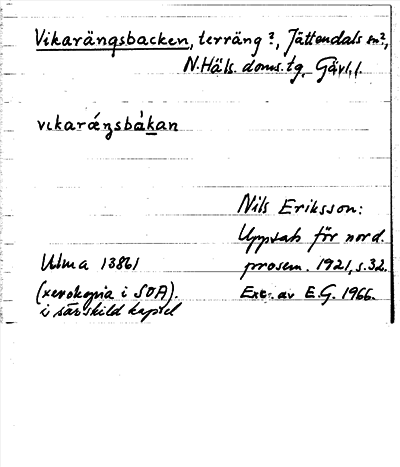 Vikarängsbacken, terräng?, Jättendals sn?,
N.Häls. doms.tg, Gävl.l.
vɩkaráŋsbàkan
Nils Eriksson:
Uppsats för nord.
prosem. 1921, s.32.
Exc. av E.G. 1966.
Ulma 13861
(xerokopia i SOA).
i särskild kapsel